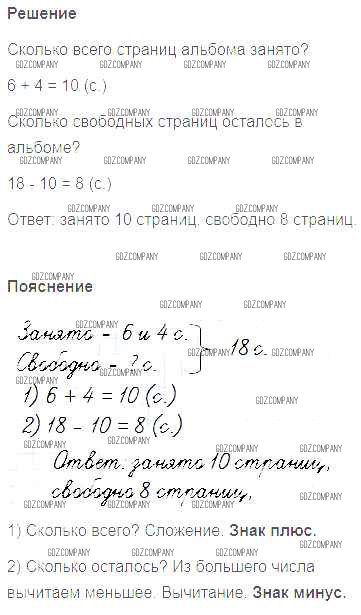 Решение
Сколько всего страниц альбома занято?
GDZCOMPANY GDZCOMPANY GDZCOMPANY GDZCOMPANY
6 + 4 = 10 (с.)
GDZCOMPANY GDZCOMPANY GDZCOMPANY GDZCOMPANY
Сколько свободных страниц осталось в
альбоме?
GDZCOMPANY GDZCOMPANY GDZCOMPANY GDZCOMPANY
18 - 10 = 8 (с.)
GDZCOMPANY GDZCOMPANY GDZCOMPANY
Ответ: занято 10 страниц, свободно 8 страниц.
GDZCOMPANY GDZCOMPANY GDZCOMPANY
GDZCOMPANY
Пояснение
GDZCOMPANY GDZCOMPANY
GDZCOMPANY
Занято - 6 и 4 с.
18 с.
GDZCOMPANY GDZCOMPANY
Свободно - ? с.
GDZCOMPANY GDZCOMPANY
1) 6 + 4 = 10 (с.)
GDZCOMPANY
2) 18 - 10 = 8 (с.)
GDZCOMPANY GDZCOMPANY GDZCOMPANY
Ответ: занято 10 страниц,
GDZCOMPANY GDZCOMPANY GDZCOMPANY GDZCOMPANY
свободно 8 страниц,
GDZCOMPANY GDZCOMPANY GDZCOMPANY GDZCOMPANY
1) Сколько всего? Сложение. Знак плюс.
GDZCOMPANY GDZCOMPANY GDZCOMPANY GDZCOMPANY
2) Сколько осталось? Из большего числа
GDZCOMPANY GDZCOMPANY GDZCOMPANY GDZCOMPANY
вычитаем меньшее. Вычитание. Знак минус.